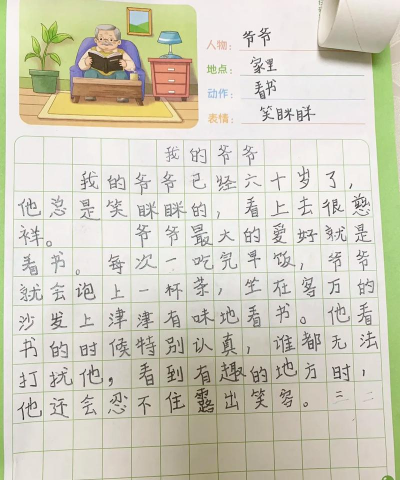 人物：爷爷
地点：家里
动作：看书
表情：笑眯眯
我的爷爷
我的爷爷已经六十岁了，
他总是笑眯眯的，看上去很慈
祥。 爷爷最大的爱好就是
看书。每次一吃完早饭，爷爷
就会泡上一杯茶，坐在客万的
沙发上津津有味地看书。他看
书的时候特别认真，谁都无法
打扰他，看到有趣的地方时，
他还会忍不住露出笑容。